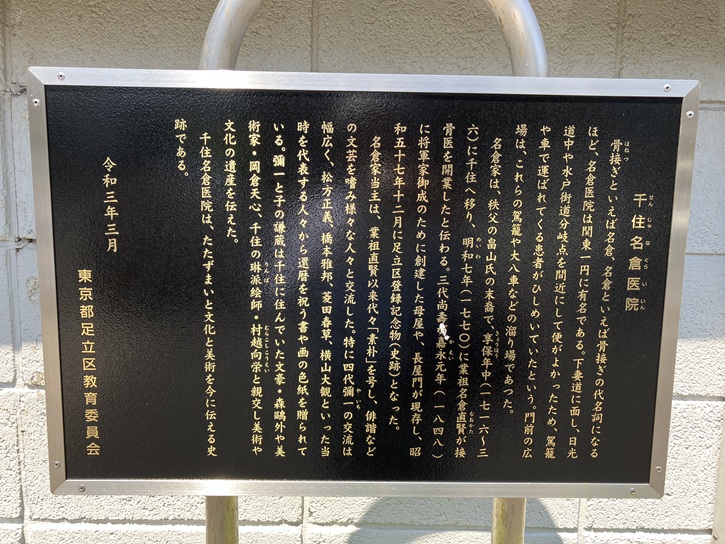 千住名倉医院
せんじゅなぐらいいん
骨接ぎといえば名倉、名倉といえば骨接ぎの代名詞になる
ほねつ
ほど、名倉医院は関東一円に有名である。下妻道に面し、日光
道中や水戸街道分岐点を間近にして便がよかったため、駕籠
や車で運ばれてくる患者がひしめいていたという。門前の広
場は、これらの駕籠や大八車などの溜り場であった。
名倉家は、秩父の畠山氏の末裔で、享保年中(一七一六〜三
きょうほう
六)に千住へ移り、明和七年(一七七〇)に業祖名倉直賢が接
めいわ
なおかた
骨医を開業したと伝わる。三代尚壽が嘉永元年(一八四八)
かえい
に将軍家御成のために創建した母屋や、長屋門が現存し、昭
和五十七年十二月に足立区登録記念物(史跡)となった。
名倉家当主は、業祖直賢以来代々「素朴」を号し、俳諧など
の文芸を嗜み様々な人々と交流した。特に四代彌一の交流は
やいち
幅広く、松方正義、橋本雅邦、菱田春草、横山大観といった当
時を代表する人々から還暦を祝う書や画の色紙を贈られて
いる。彌一と子の謙蔵は千住に住んでいた文豪・森鷗外や美
術家・岡倉天心、千住の琳派絵師・村越向栄と親交し美術や
りんぱ
むらこしこうえい
文化の遺産を伝えた。
千住名倉医院は、たたずまいと文化と美術を今に伝える史
跡である。
令和三年三月
東京都足立区教育委員会